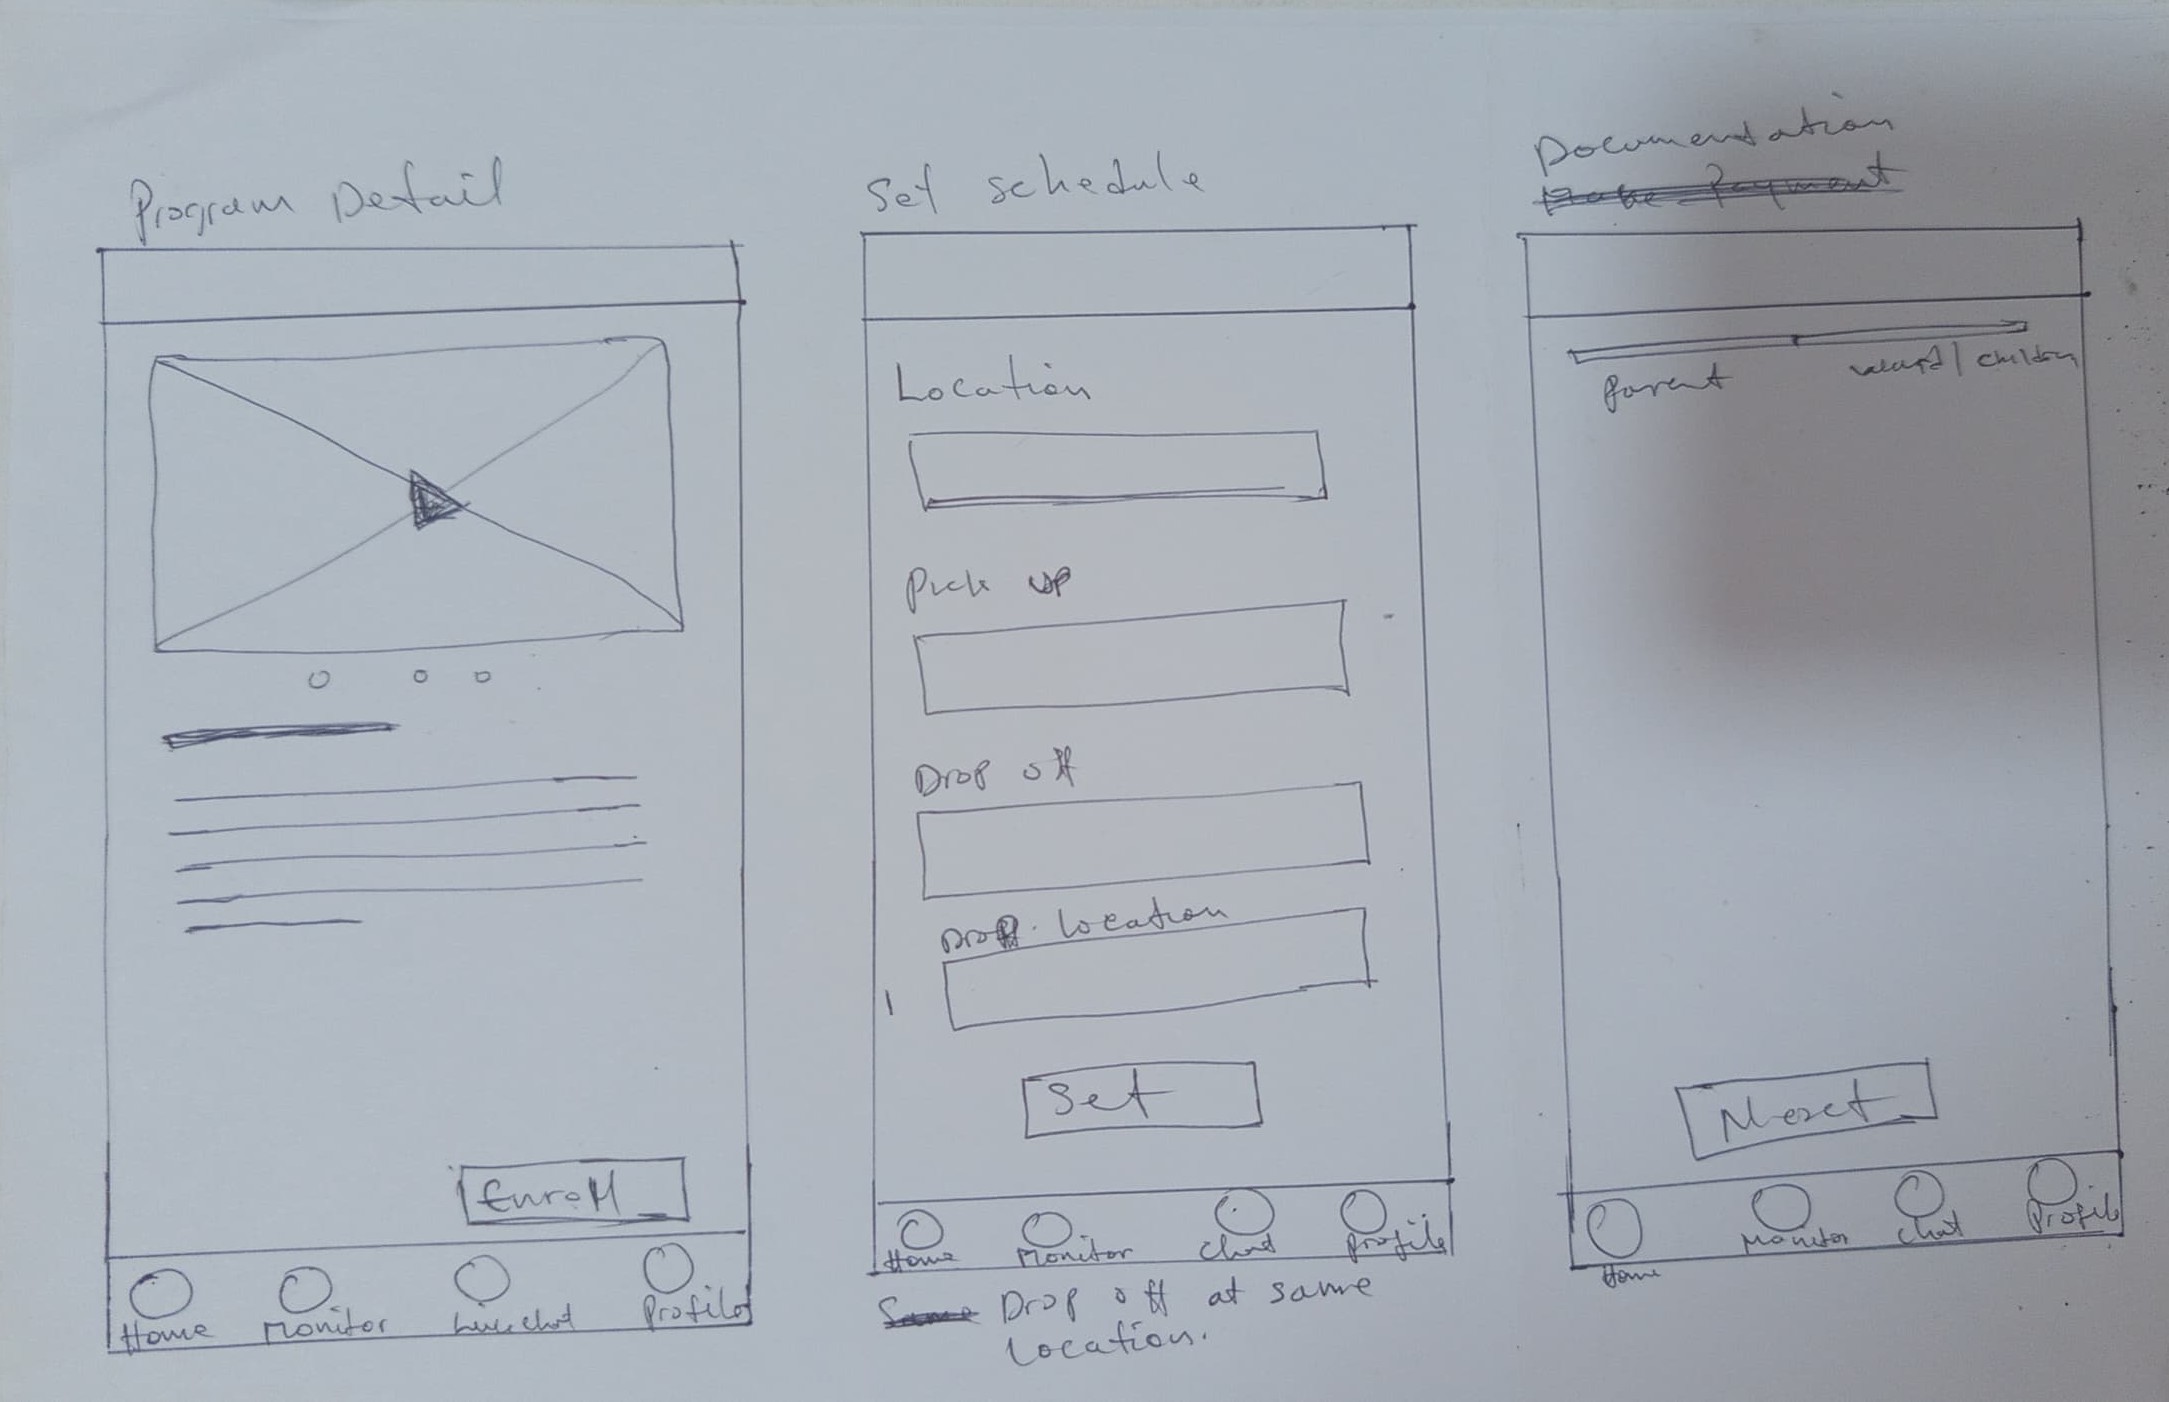 Program Detail
Enroll
Home Monitor Livechat Profile
Set schedule
Location
Pick up
Drop off
Drop. location
Set
Home Monitor Chat Profile
Same Drop off at same
Location.
Documentation
Make Payment
parent ward / children
Next
Home Monitor Chat Profile